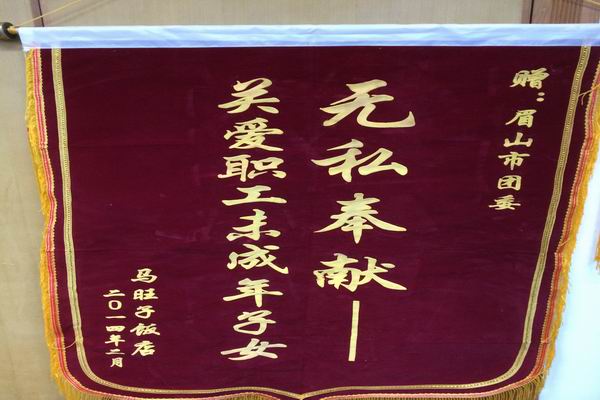 赠:眉山市团委
无私奉献—
关爱职工未成年子女
马旺子饭店
二〇一四年二月